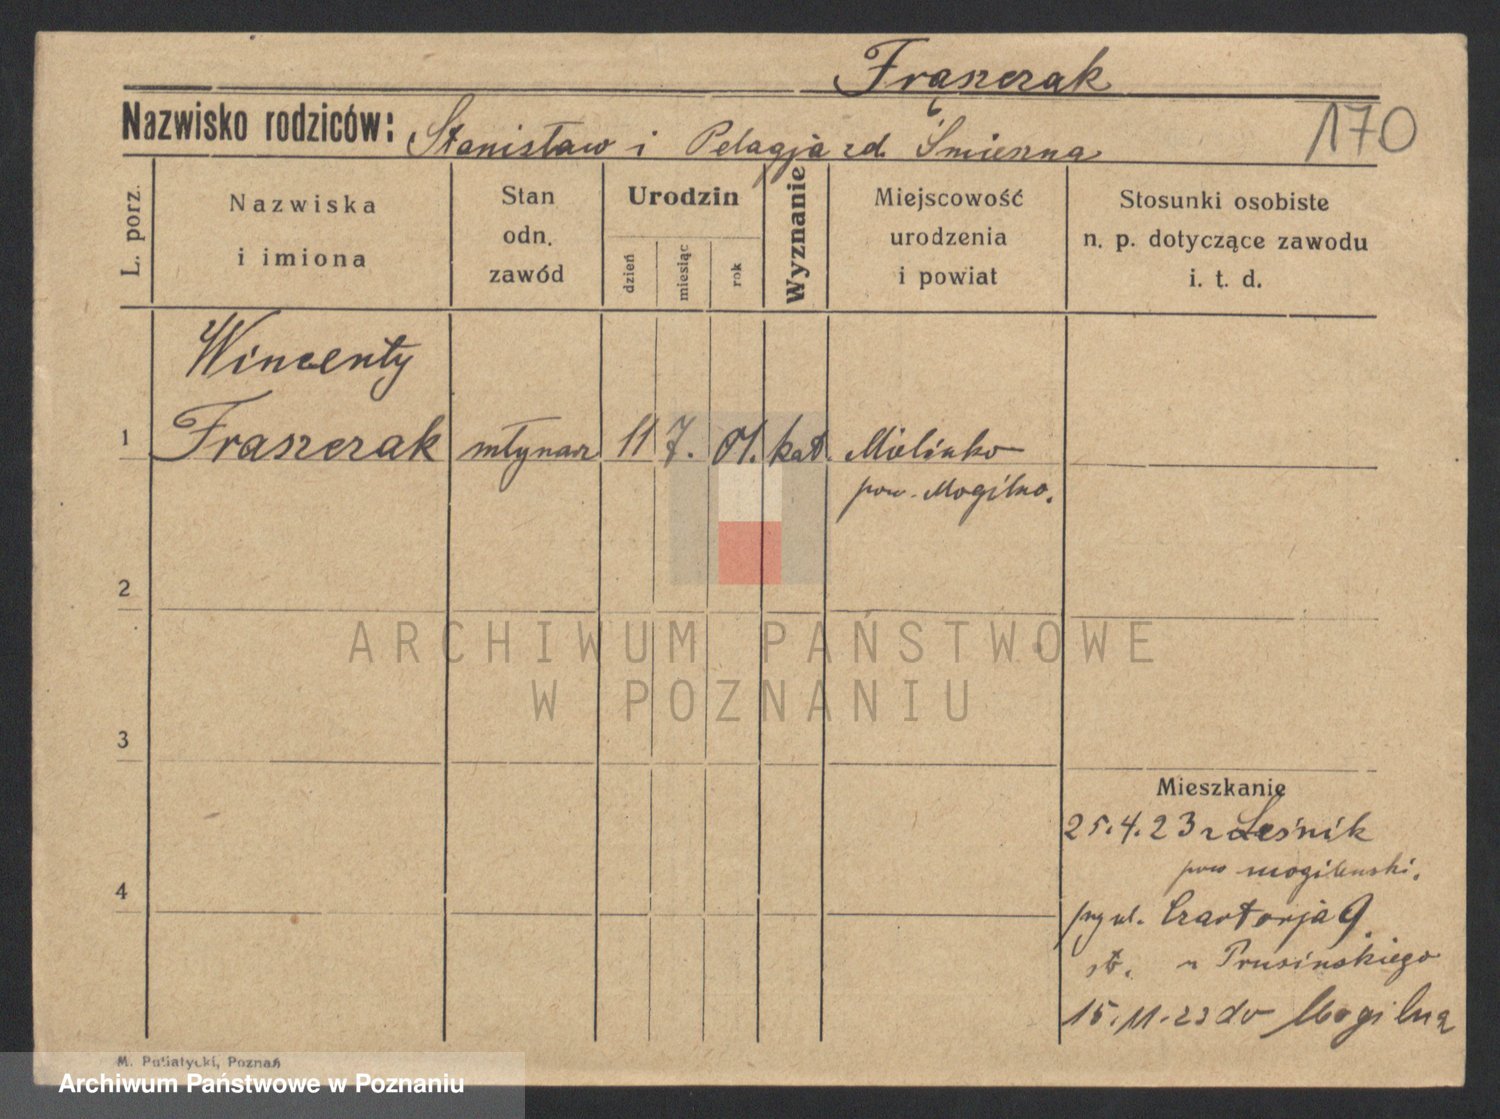 Frąszczak
Nazwisko rodziców: Stanisław i Pelagja zd. Śmierzna
170
L. porz.
Nazwiska
i imiona
Stan
odn.
zawód
Urodzin
dzień
miesiąc
rok
Wyznanie
Miejscowość
urodzenia
i powiat
Stosunki osobiste
n. p. dotyczące zawodu
i. t. d.
Wincenty
1 Fraszczak młynarz 11 7. 01. kat. Mielinko
pow. Mogilno.
2
3
4
Mieszkanie
25.4.23 z Leśnik
pow mogilenski.
przy ul. Czartorja 9
st. u Prusińskiego
15.11.23 do Mogilna
M. Putiatycki, Poznań
ARCHIWUM PAŃSTWOWE
W POZNANIU
Archiwum Państwowe w Poznaniu